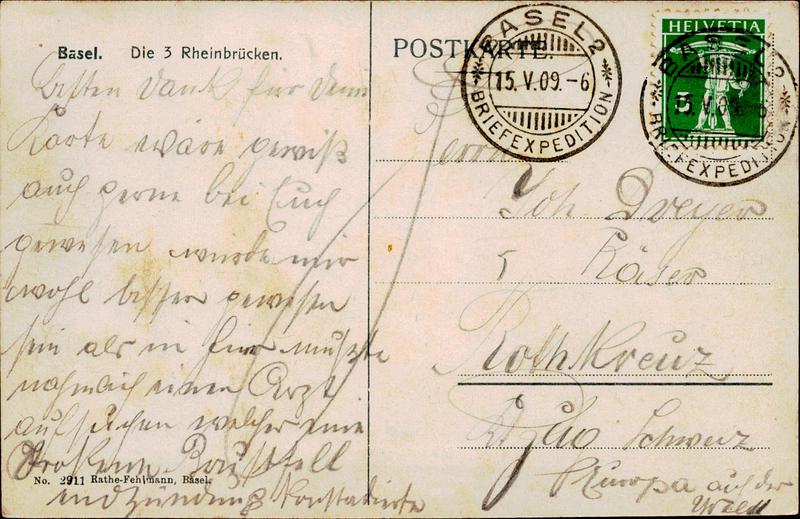 Basel. Die 3 Rheinbrücken.
POSTKARTE.
BASEL 2
15. V. 09. - 6
BRIEFEXPEDITION
HELVETIA
5
BASEL 2
15. V. 09. - 6
BRIEFEXPEDITION
Besten Dank für deine
Karte wäre gewiß
auch gerne bei Euch
gewesen würde mir
wohl besser gewesen
sein als in hier mußte
nähmlich einen Arzt
aufsuchen welcher eine
Trokene Baufell
endzündung konstatierte
Herrn
Joh Dreyer
Käser
Rothkreuz
Kt Zug Schweiz
Europa auf der
Welt
No. 2911 Rathe-Fehlmann, Basel.